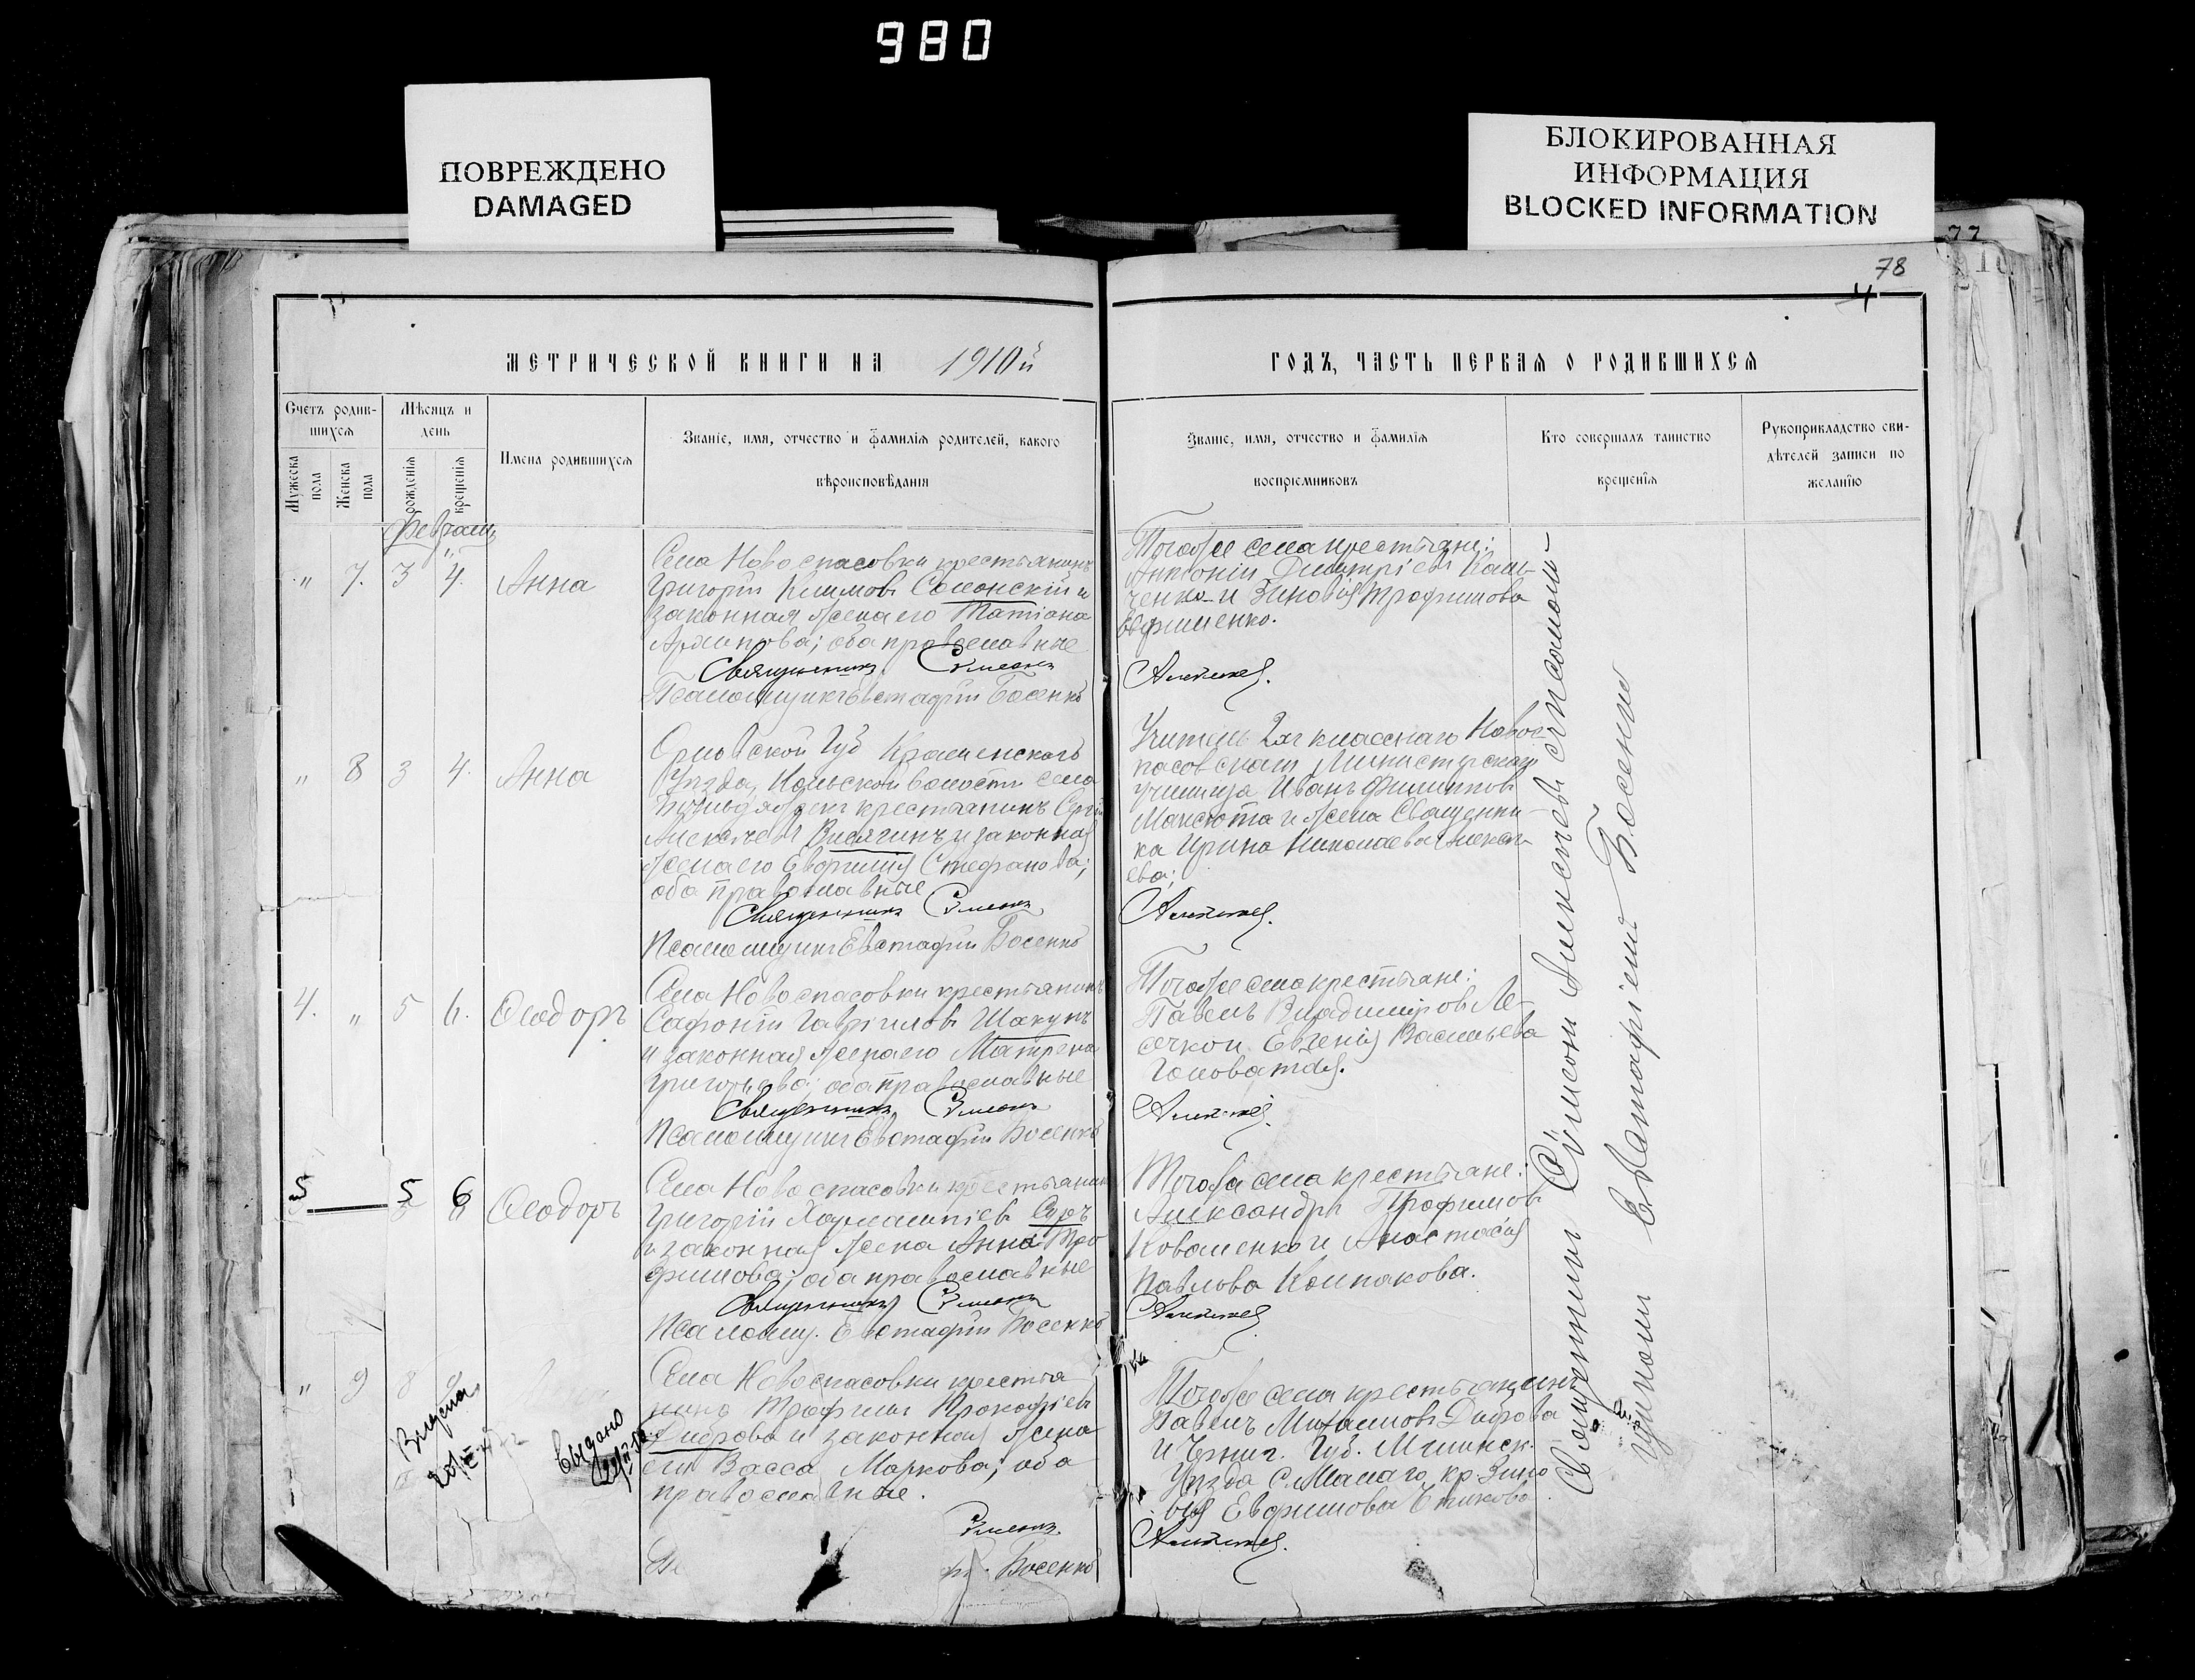 980
ПОВРЕЖДЕНО
DAMAGED
БЛОКИРОВАННАЯ
ИНФОРМАЦИЯ
BLOCKED INFORMATION
77
78
4
МЕТРИЧЕСКОЙ КНИГИ НА 1910й
ГОДЪ, ЧАСТЬ ПЕРВАЯ О РОДИВШИХСЯ
Счетъ родив-
шихся
Мѣсяцъ и
день
Мужеска
пола
Женска
пола
рожденія
крещенія
Имена родившихся
Званіе, имя, отчество и фамилія родителей, какого
вѣроисповѣданія
Званіе, имя, отчество и фамилія
воспріемниковъ
Кто совершалъ таинство
крещенія
Рукоприкладство сви-
дѣтелей записи по
желанію
Февраль
" 7. 3 4. Анна
Села Новоспасовки крестьянинъ
Григорій Климовъ Солонскій и
законная жена его Татіана
Архипова; оба православные
Священникъ Сѵмеонъ
Псаломщикъ Евстафій Босенко
Тогоже села крестьяне:
Антоній Димитріевъ Каш-
ченко и Зиновія Трофимова
Ефименко.
Алексѣевъ.
" 8 3 4. Анна
Орловской Губ
Уѣзда, волости села
крестьянинъ
Алексѣевъ и законная
жена его Евфимія Стефанова;
оба православные
Священникъ Сѵмеонъ
Псаломщикъ Евстафій Босенко
Учитель 2хъ класснаго Новос-
пасовскаго Министерскаго
училища Иванъ Филипповъ
Максюта и жена Священни-
ка Ирина Николаева Алексѣ-
ева;
Алексѣевъ.
4. " 5 6. Ѳеодоръ
Села Новоспасовки крестьянинъ
Сафоній Гавріиловъ Шакунъ
и законная жена его Матрена
Григорьева; оба православные
Священникъ Сѵмеонъ
Псаломщикъ Евстафій Босенко
Тогоже села крестьяне:
Павелъ Владиміровъ Ле-
Евгенія Васильева
Головатая.
Алексѣевъ.
5 5 6 Ѳеодоръ
Села Новоспасовки крестьянинъ
Григорій Харлампіевъ Суръ
и законная жена Анна Тро
фимова; оба православные
Священникъ Сѵмеонъ
Псаломщ. Евстафій Босенко
Тогоже села крестьяне:
Александръ Трофимовъ
Коваленко и Анастасія
Павлова Колпакова.
Алексѣевъ
" 9 8
Выдана
Выдано
Села Новоспасовки крестья
нинъ Трофимъ Прокофіевъ
Диброва и законная жена
его Васса Маркова; оба
православные.
Сѵмеонъ
Босенко
Тогоже села крестьянинъ
Павелъ Михаиловъ Диброва
и Черниг. Губ. Мглинск.
Уѣзда кр. Зино
вія Евфимова
Алексѣевъ.
Священникъ Сѵмеонъ Алексѣевъ съ Псаломщикомъ Евстафіемъ Босенко